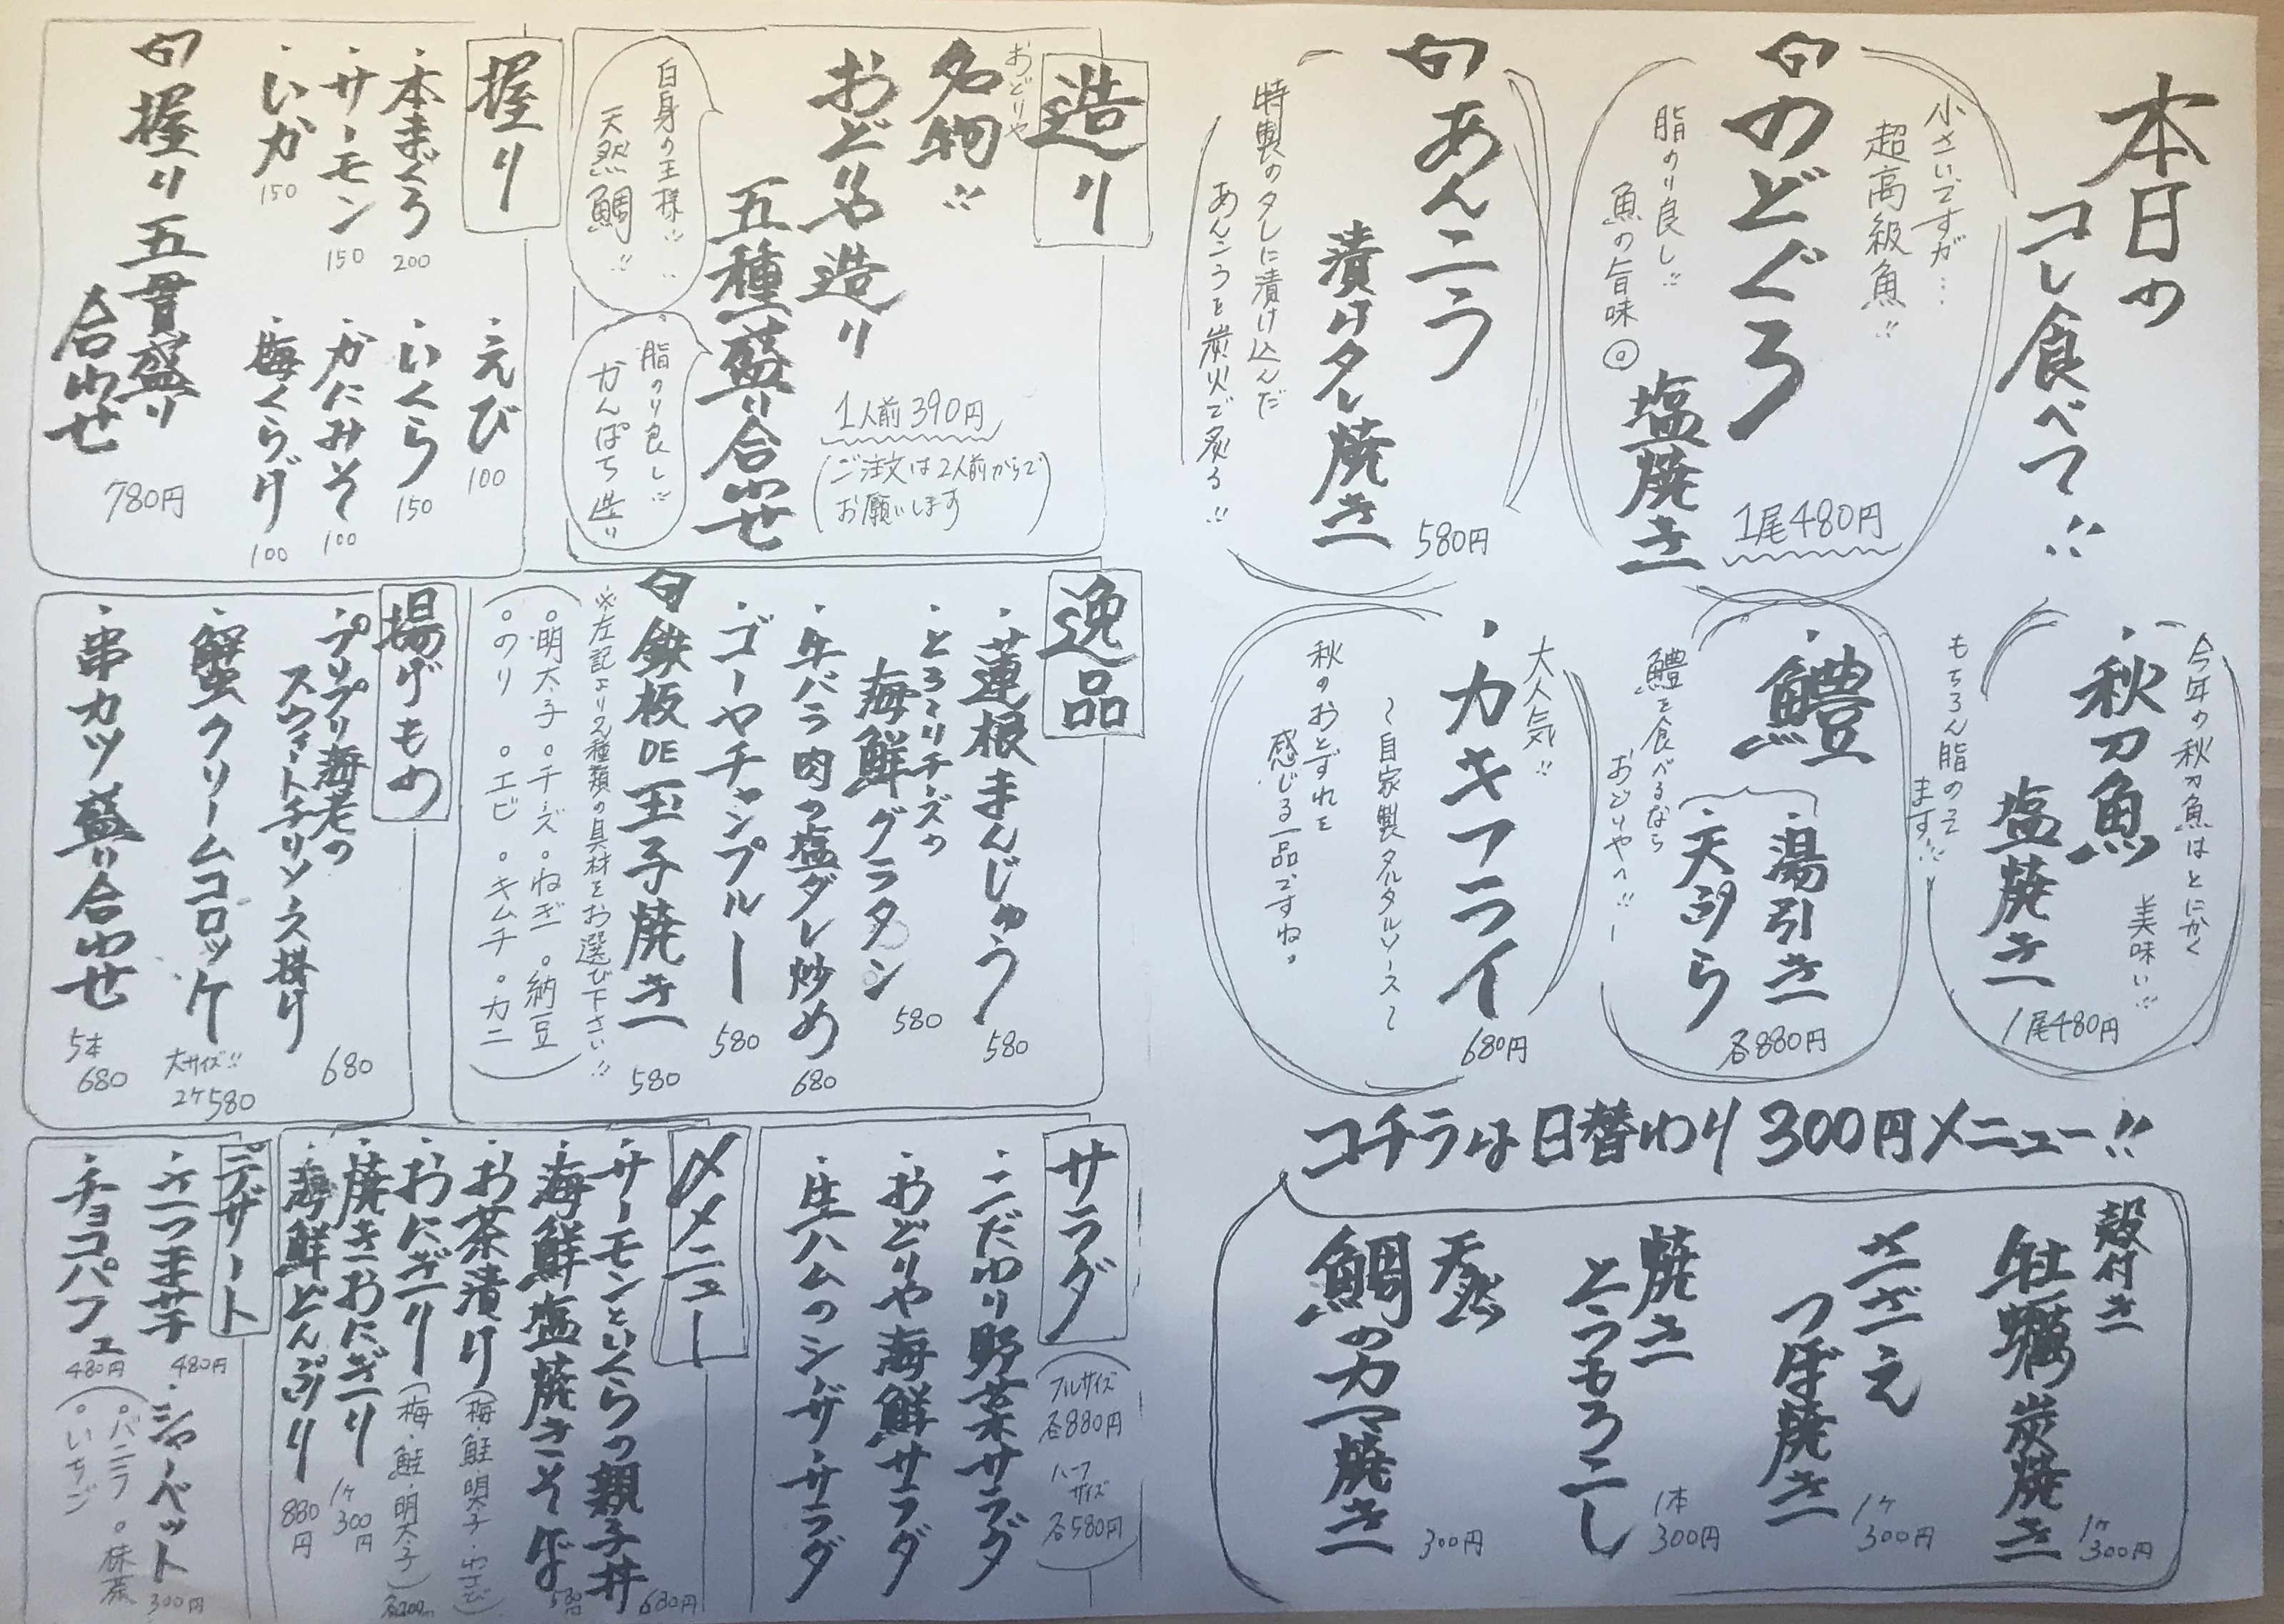 本日の
コレ食べて!!
小さいですが…
超高級魚!!
旬のどぐろ
塩焼き
1尾480円
脂のり良し!!
魚の旨味◎
旬あんこう
漬けタレ焼き
580円
特製のタレに漬け込んだ
あんこうを炭火で炙る!!
今年の秋刀魚はとにかく
美味い!!
・秋刀魚
塩焼き
1尾480円
もちろん脂のってます!!
・鱧
湯引き
天ぷら
各880円
鱧を食べるなら
おどりやへ!!
大人気!!
・カキフライ
680円
～自家製タルタルソース～
秋のおとずれを
感じる一品ですね。
コチラは日替わり300円メニュー!!
殻付き
牡蠣炭焼き
1ヶ
300円
さざえ
つぼ焼き
1ヶ
300円
焼き
とうもろこし
1本
300円
天然
鯛のカマ焼き
300円
造り
おどりや
名物!!
おどりや造り
五種盛り合わせ
1人前390円
(ご注文は2人前からで
お願いします)
白身の王様!!
天然鯛!!
脂のり良し!!
かんぱち造り
握り
・本まぐろ
200
・サーモン
150
・いか
150
・えび
100
・いくら
150
・かにみそ
100
・梅くらげ
100
旬握り五貫盛り
合わせ
780円
逸品
・蓮根まんじゅう
580
・とろ～りチーズの
海鮮グラタン
580
・牛バラ肉の塩ダレ炒め
680
・ゴーヤチャンプルー
580
旬鉄板DE玉子焼き
580
※左記より2種類の具材をお選び下さい!!
。明太子。チーズ。ねぎ。納豆
。のり。エビ。キムチ。カニ
揚げもの
・プリプリ海老の
スウィートチリソース掛け
680
・蟹クリームコロッケ
大サイズ!!
2ヶ580
・串カツ盛り合わせ
5本
680
サラダ
フルサイズ
各880円
ハーフ
サイズ
各580円
・こだわり野菜サラダ
・おどりや海鮮サラダ
・生ハムのシーザーサラダ
〆メニュー
・サーモンといくらの親子丼
680円
・海鮮塩焼きそば
580円
・お茶漬け
(梅・鮭・明太子・わさび)
・おにぎり
(梅・鮭・明太子)
各200円
・焼きおにぎり
1ヶ
300円
・海鮮どんぶり
880円
デザート
・さつま芋
480円
・チョコパフェ
480円
・シャーベット
300円
(。バニラ。抹茶
。いちご